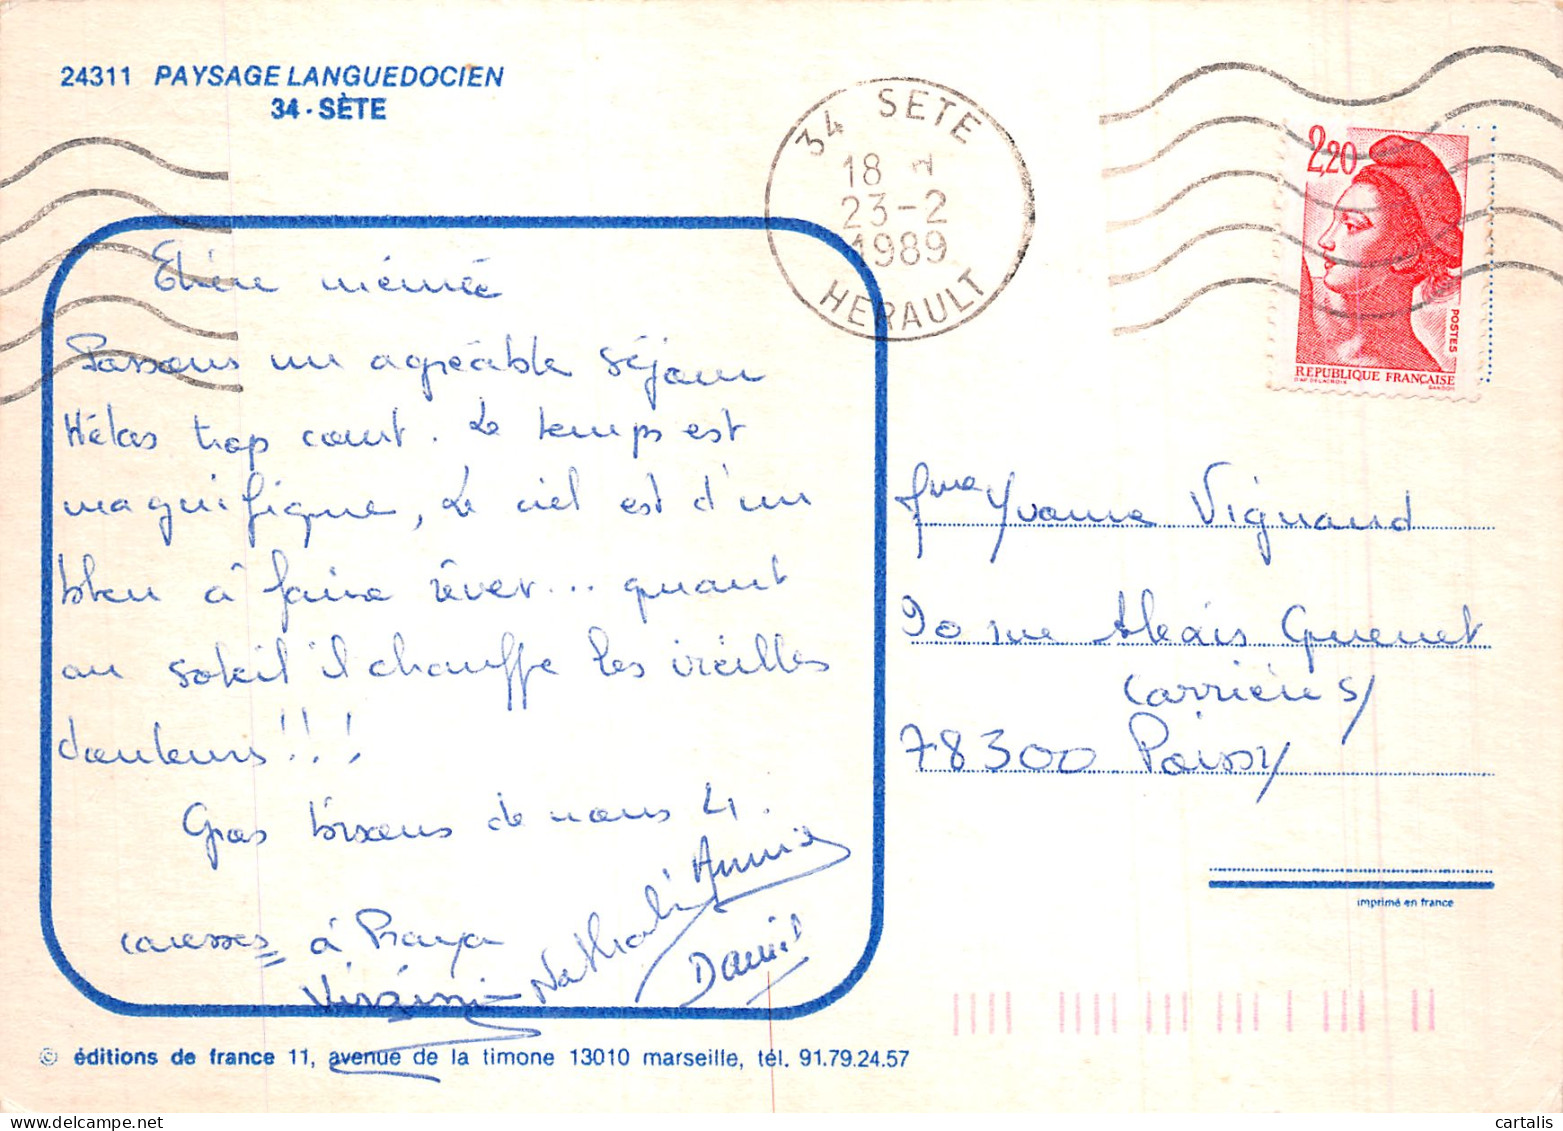 24311 PAYSAGE LANGUEDOCIEN
34 - SÈTE
34 SETE
18 H
23-2
1989
HERAULT
2,20
POSTES
REPUBLIQUE FRANÇAISE
D'AP. DELACROIX GANDON
Chère mémée
Passons un agréable séjour
Hélas trop court. Le temps est
magnifique, Le ciel est d'un
bleu à faire rêver... quant
au soleil il chauffe les vieilles
douleurs!!!
Gros bisous de nous 4.
caresses à Praya
Virginie Nathalie Annie
Daniel
Mme Yvonne Vignaud
90 rue Alexis Quenet
Carrières
78300 Poissy
imprimé en france
© éditions de france 11, avenue de la timone 13010 marseille, tél. 91.79.24.57
cartalis